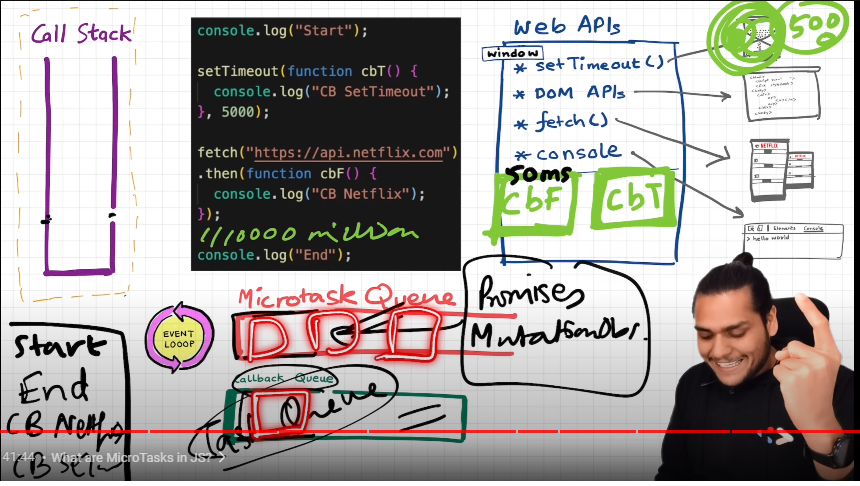 Call Stack
console.log("Start");
setTimeout(function cbT() {
console.log("CB SetTimeout");
}, 5000);
fetch("https://api.netflix.com")
.then(function cbF() {
console.log("CB Netflix");
});
10000 million
console.log("End");
Web APIs
window
* setTimeout()
* DOM APIs
* fetch()
* console
50ms
CbF
CbT
500
NETFLIX
Elements Console
> hello world
Microtask Queue
Promises
EVENT
LOOOP
Callback Queue
Task Queue
Start
End
41:44 • What are MicroTasks in JS? >